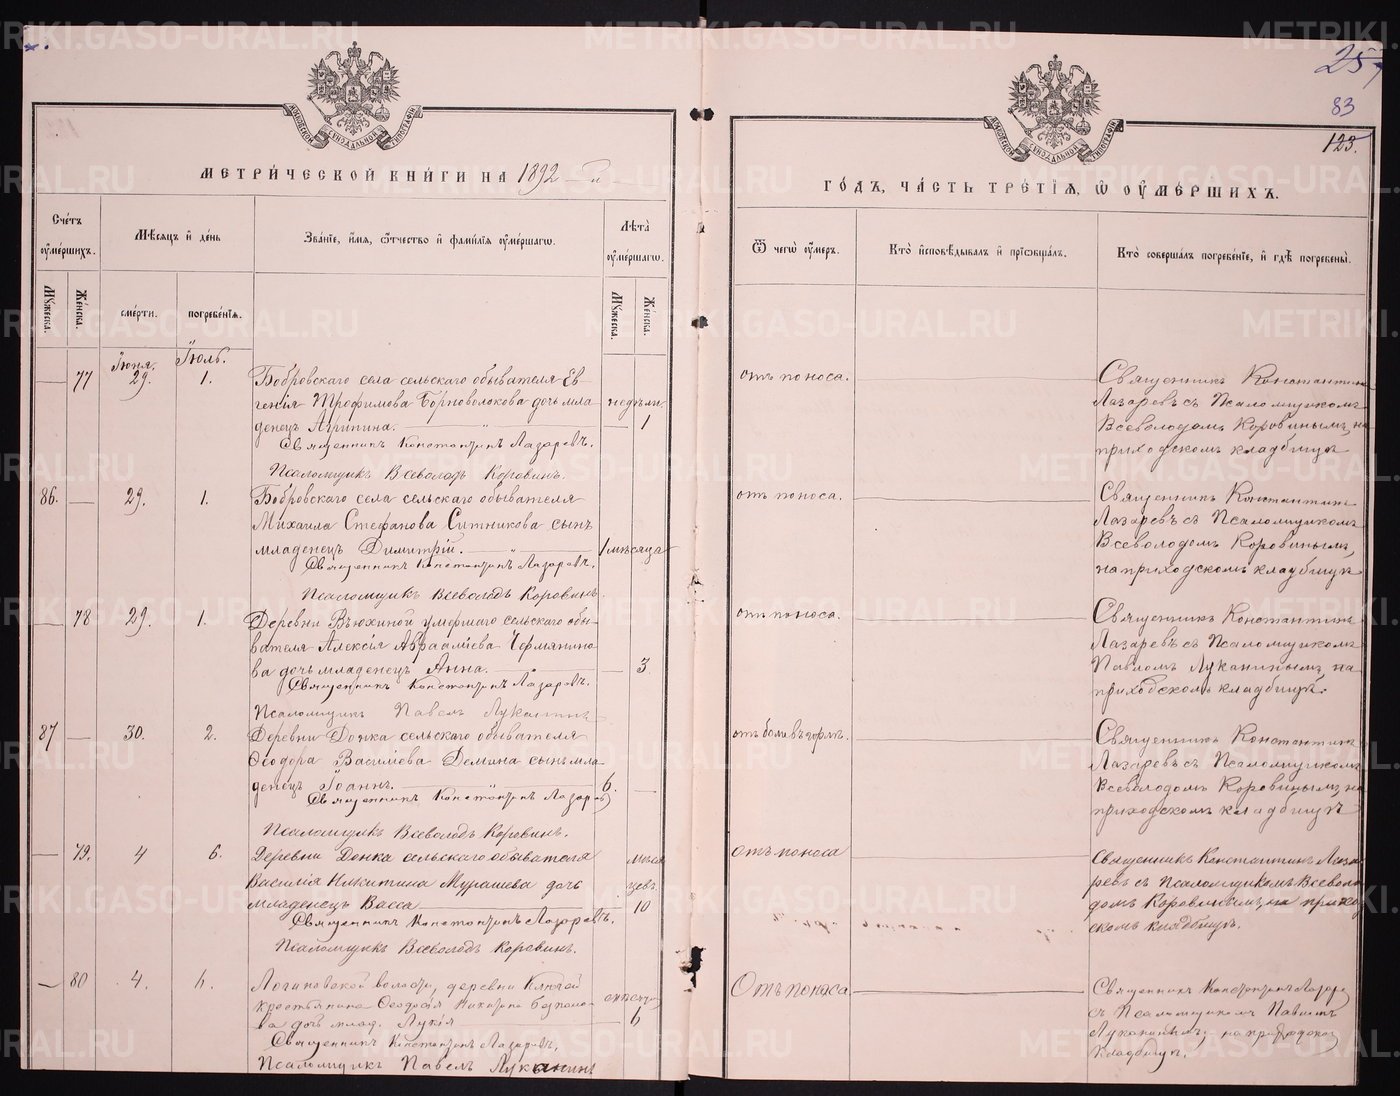 25
83
123.
МЕТРИ́ЧЕСКОЙ КНИ́ГИ НА 1892 й
ГО́ДЪ, ЧА́СТЬ ТРЕ́ТІѦ, Ѡ ОУМЕ́РШИХЪ.
Сче́тъ оуме́ршихъ.
Мѣ́сѧцъ и де́нь
Зва́нїе, и́мѧ, ѻ́тчество и фами́лїѧ оуме́ршагѡ.
Лѣ́та оуме́ршагѡ.
Ѿ чегѡ̀ оу́меръ.
Кто̀ исповѣ́дывалъ и прїѡбща́лъ.
Кто̀ соверша́лъ погребе́нїе, и гдѣ̀ погребены̀.
Мꙋ́жеска.
Же́нска.
сме́рти.
погребе́нїѧ.
Мꙋ́жеска.
Же́нска.
Іюня.
Іюль.
77 29. 1. Бобровскаго села сельскаго обывателя Ев-
генія Трофимова Борноволокова дочь мла- недѣли.
денецъ Агрипина. 1
Священникъ Константинъ Лазаревъ.
Псаломщикъ Всеволодъ Коровинъ.
отъ поноса.
Священникъ Константинъ
Лазаревъ съ Псаломщикомъ
Всеволодомъ Коровинымъ, на
приходскомъ кладбищѣ
86. 29. 1. Бобровскаго села сельскаго обывателя
Михаила Стефанова Ситникова сынъ
младенецъ Димитрій. 1 мѣсяца
Священникъ Константинъ Лазаревъ.
Псаломщикъ Всеволодъ Коровинъ.
отъ поноса.
Священникъ Константинъ
Лазаревъ съ Псаломщикомъ
Всеволодомъ Коровинымъ,
на приходскомъ кладбищѣ
78 29. 1. Деревни Вьюхиной умершаго сельскаго обы-
вателя Алексія Авраамiева Чермянино-
ва дочь младенецъ Анна. 3.
Священникъ Константинъ Лазаревъ.
Псаломщикъ Павелъ Луканинъ
отъ поноса.
Священникъ Константинъ
Лазаревъ съ Псаломщикомъ
Павломъ Луканинымъ, на
приходскомъ кладбищѣ.
87 30. 2. Деревни Донка сельскаго обывателя
Ѳеодора Василіева Демина сынъ мла-
денецъ Іоаннъ. 6.
Священникъ Константинъ Лазаревъ
Псаломщикъ Всеволодъ Коровинъ.
отъ боли въ горлѣ.
Священникъ Константинъ
Лазаревъ съ Псаломщикомъ
Всеволодомъ Коровинымъ, на
приходскомъ кладбищѣ
79. 4 6. Деревни Донка сельскаго обывателя мѣся
Василія Никитина Мурашева дочь цевъ.
младенецъ Васса 10
Священникъ Константинъ Лазаревъ.
Псаломщикъ Всеволодъ Коровинъ.
отъ поноса
Священникъ Константинъ Лаза
ревъ съ Псаломщикомъ Всеволо
домъ Коровинымъ, на приход
скомъ кладбищѣ.
80 4. Логиновской волости, деревни Ключей
крестьянина Ѳеодосія Никитина
ва дочь млад. Лукія 6
Священникъ Константинъ Лазаревъ.
Псаломщикъ Павелъ Луканинъ
Отъ поноса
Священникъ Константинъ Лазаре
съ Псаломщикомъ Павломъ
Луканинымъ, на приходском
кладбищѣ.
METRIKI.GASO-URAL.RU